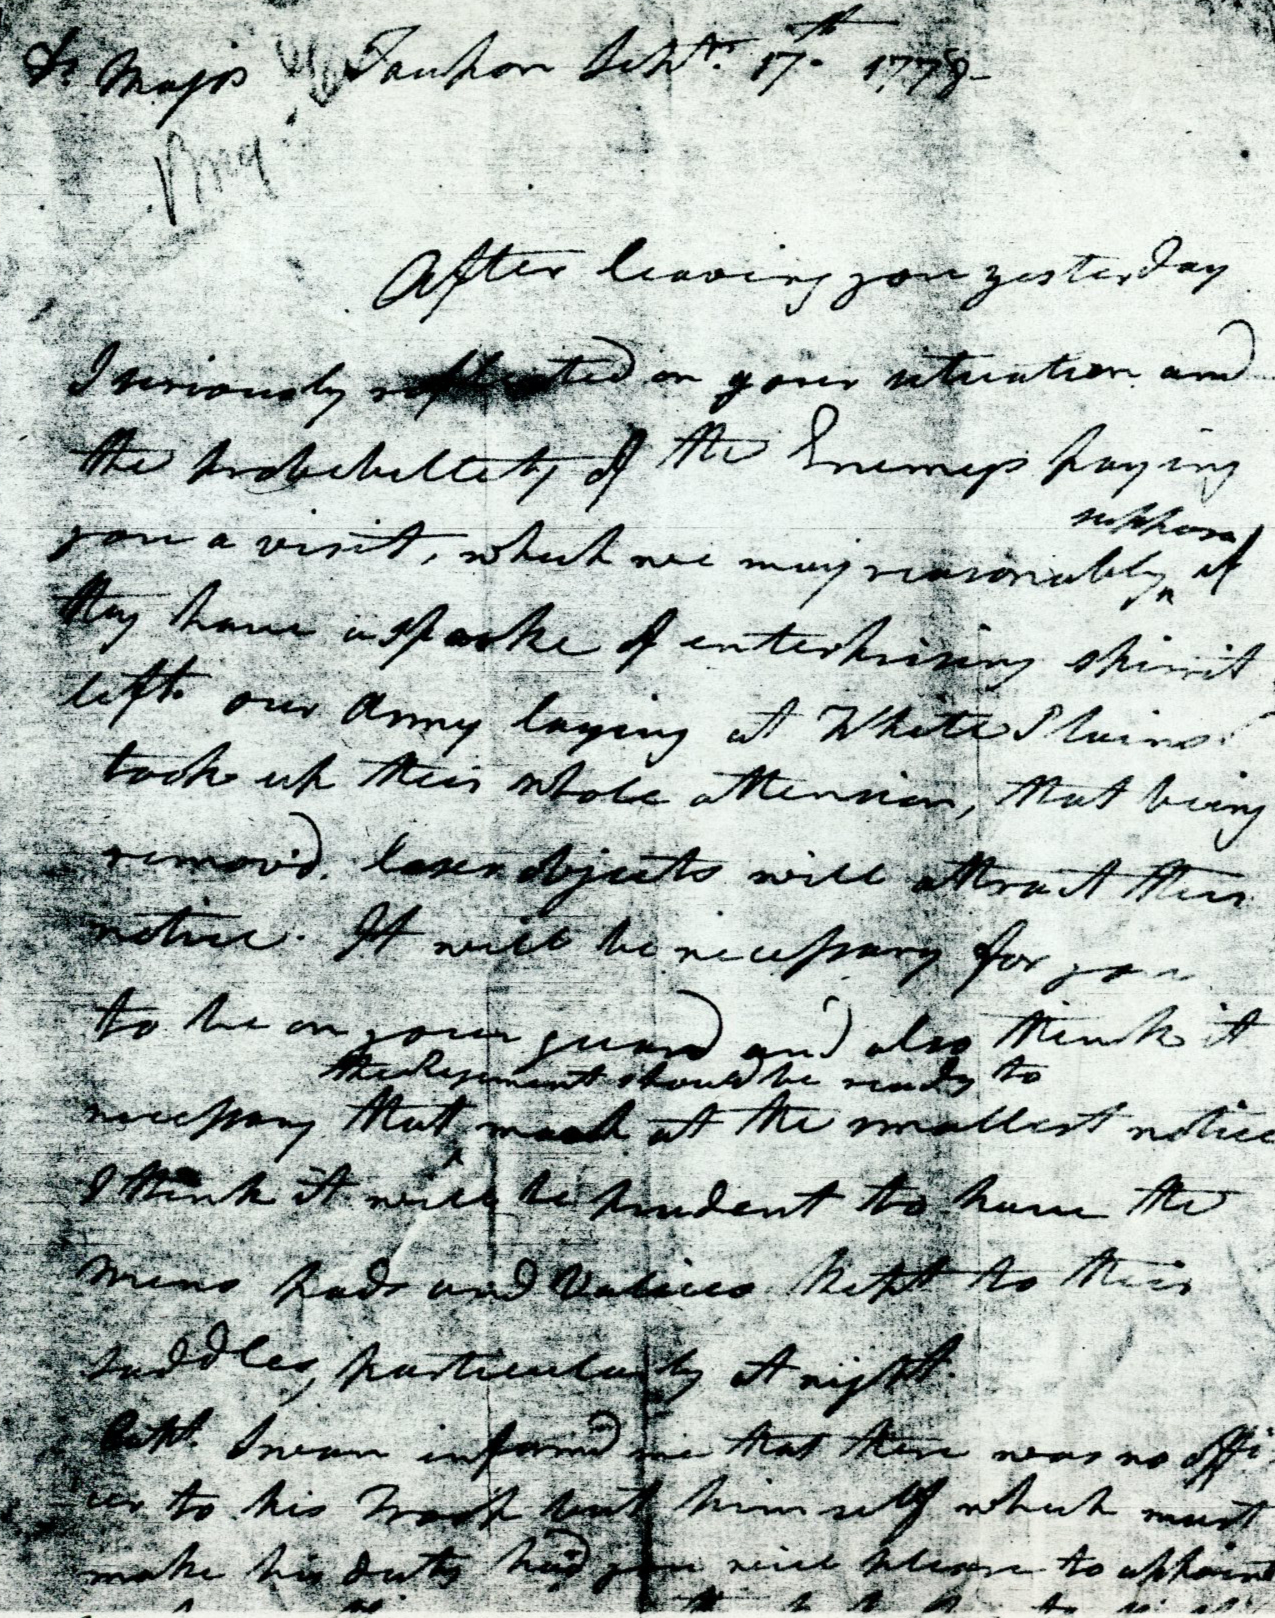 Dr Major Taupon Sepr. 17th 1778
After leaving you yesterday
I seriously reflected on your situation and
the probebillety of the Enemeys paying
you a visit, which we may reasonably suppose if
they have a sparke of enterprising spirrit
left. our Army laying at White Plains
took up their whole attension, that being
remov'd. lesser objects will attract their
notice. It will be necessary for you
to be on your guard and also think it
necessary that the Regement should be ready to march at the smallest notice
I think it will be prudent to have the
mens pads and Valices kept to their
saddles, particularly at night.
Capt. Swan inform'd me that there was no offi-
cer to his Troop but himself which must
make his duty hard you will please to appoint